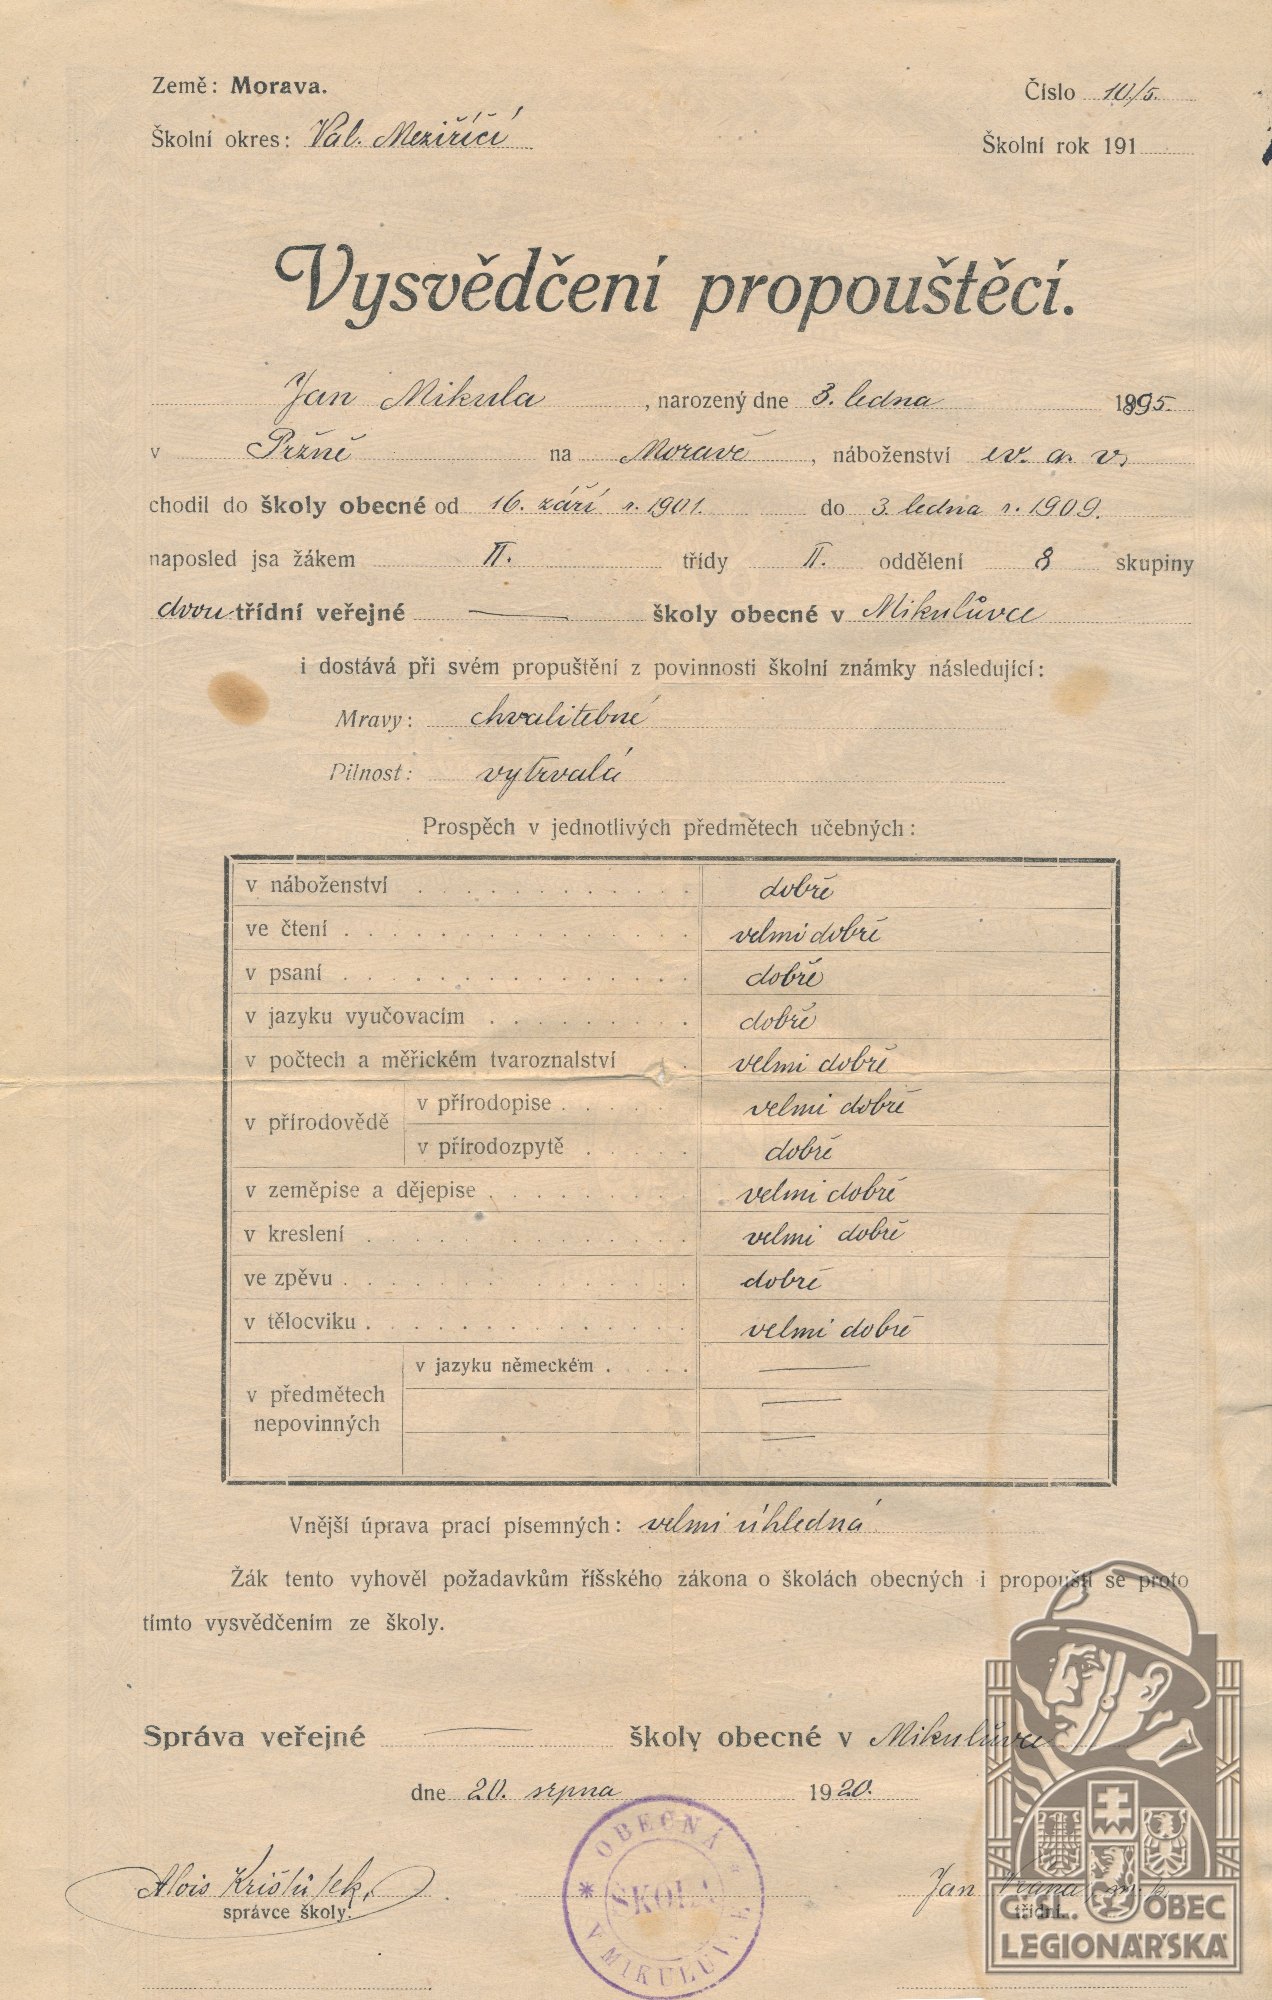 Země: Morava.
Číslo 10./5.
Školní okres: Val. Meziříčí
Školní rok 191
Vysvědčení propouštěcí.
Jan Mikula, narozený dne 3. ledna 1895.
v Pržně na Moravě, náboženství ev. a. v.
chodil do školy obecné od 16. září r. 1901. do 3. ledna r. 1909.
naposled jsa žákem II. třídy II. oddělení 8 skupiny
dvoutřídní veřejné — školy obecné v Mikulůvce
i dostává při svém propuštění z povinnosti školní známky následující:
Mravy: chvalitebné
Pilnost: vytrvalá
Prospěch v jednotlivých předmětech učebných:
v náboženství dobrý
ve čtení velmi dobrý
v psaní dobrý
v jazyku vyučovacím dobrý
v počtech a měřickém tvaroznalství velmi dobrý
v přírodovědě
v přírodopise velmi dobrý
v přírodozpytě dobrý
v zeměpise a dějepise velmi dobrý
v kreslení velmi dobrý
ve zpěvu dobrý
v tělocviku velmi dobrý
v předmětech nepovinných
v jazyku německém —
Vnější úprava prací písemných: velmi úhledná
Žák tento vyhověl požadavkům říšského zákona o školách obecných i propouští se proto
tímto vysvědčením ze školy.
Správa veřejné — školy obecné v Mikulůvce
dne 20. srpna 1920.
OBECNÁ ŠKOLA V MIKULŮVCE
Alois Krištůfek,
správce školy.
Jan Vrána m. p.
třídní.
ČsL. OBEC
LEGIONÁŘSKÁ